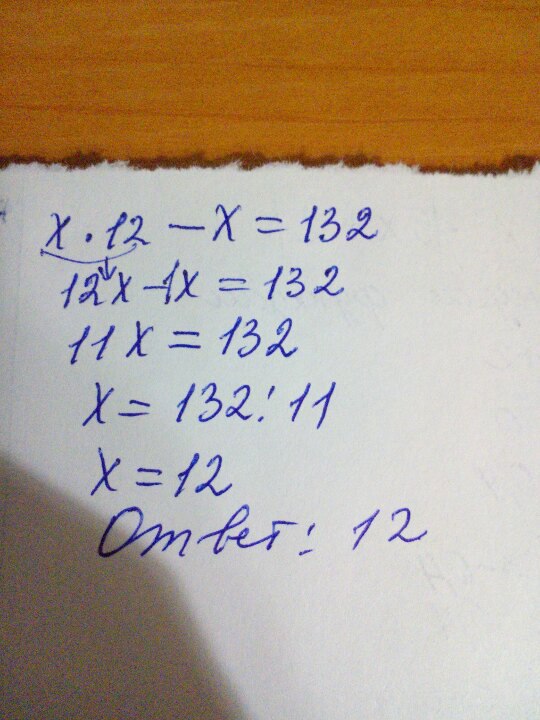 x · 12 – x = 132
12x – 1x = 132
11x = 132
x = 132 : 11
x = 12
Ответ: 12